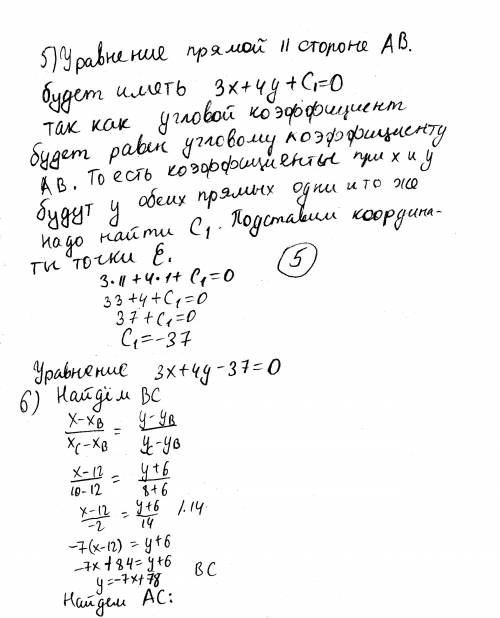 5) Уравнение прямой || стороне AB.
будет иметь 3x+4y+C₁=0
так как угловой коэффициент
будет равен угловому коэффициенту
AB. То есть коэффициенты при x и y
будут у обеих прямых одни и то же
надо найти C₁. Подставим координа-
ти точки E.
3·11+4·1+C₁=0
5
33+4+C₁=0
37+C₁=0
C₁=-37
Уравнение 3x+4y-37=0
6) Найдём BC
(x-x_B)/(x_C-x_B) = (y-y_B)/(y_C-y_B)
(x-12)/(10-12) = (y+6)/(8+6)
(x-12)/(-2) = (y+6)/14 /·14
-7(x-12)=y+6
-7x+84=y+6
y=-7x+78 BC
Найдем AC: